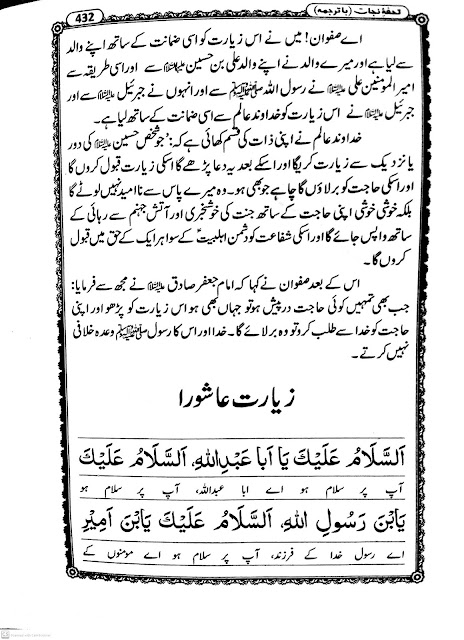 تحفۂ نجات (با ترجمہ)
432
اے صفوان! میں نے اس زیارت کو اسی ضمانت کے ساتھ اپنے والد
سے لیا ہے اور میرے والد نے اپنے والد علی بن حسین علیہ السلام سے اور اسی طریقہ سے
امیر المومنین علی علیہ السلام نے رسول اللہ ﷺ سے اور انہوں نے جبرئیل علیہ السلام سے اور
جبرئیل علیہ السلام نے اس زیارت کو خداوند عالم سے اسی ضمانت کے ساتھ لیا ہے۔
خداوند عالم نے اپنی ذات کی قسم کھائی ہے کہ: ”جو شخص حسین علیہ السلام کی دور
یا نزدیک سے زیارت کریگا اور اسکے بعد یہ دعا پڑھے گا اسکی زیارت قبول کروں گا
اور اسکی حاجت کو برلاؤں گا چاہے جو بھی ہو۔ وہ میرے پاس سے ناامید نہیں لوٹے گا
بلکہ خوشی خوشی اپنی حاجت کے ساتھ جنت کی خوشخبری اور آتش جہنم سے رہائی کے
ساتھ واپس جائے گا اور اسکی شفاعت کو دشمن اہلبیتؑ کے سوا ہر ایک کے حق میں قبول
کروں گا۔
اس کے بعد صفوان نے کہا کہ امام جعفر صادق علیہ السلام نے مجھ سے فرمایا:
جب بھی تمہیں کوئی حاجت درپیش ہو تو جہاں بھی ہو اس زیارت کو پڑھو اور اپنی
حاجت کو خدا سے طلب کرو تو وہ برلائے گا۔ خدا اور اس کا رسول ﷺ وعدہ خلافی
نہیں کرتے۔
زیارت عاشورا
اَلسَّلَامُ عَلَيْكَ يَا اَبَا عَبْدِاللهِ، اَلسَّلَامُ عَلَيْكَ
آپ پر سلام ہو اے ابا عبداللہ، آپ پر سلام ہو
يَابْنَ رَسُولِ اللهِ، اَلسَّلَامُ عَلَيْكَ يَابْنَ اَمِيْرِ
اے رسول خدا کے فرزند، آپ پر سلام ہو اے مومنوں کے